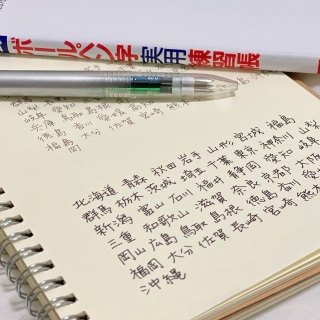 ボールペン字実用練習帳
兵庫 鳥取
徳島 香川 愛媛
福岡 大分 佐賀 宮崎 熊本
北海道 青森 秋田 岩手 山形 宮城 福島
群馬 栃木 茨城 埼玉 千葉 東京 神奈川 山梨
新潟 富山 石川 福井 静岡 愛知 岐阜
三重 和歌山 滋賀 奈良 京都 大阪
岡山 広島 鳥取 島根 徳島 香川 愛媛
福岡 大分 佐賀 長崎 宮崎 熊本
沖縄